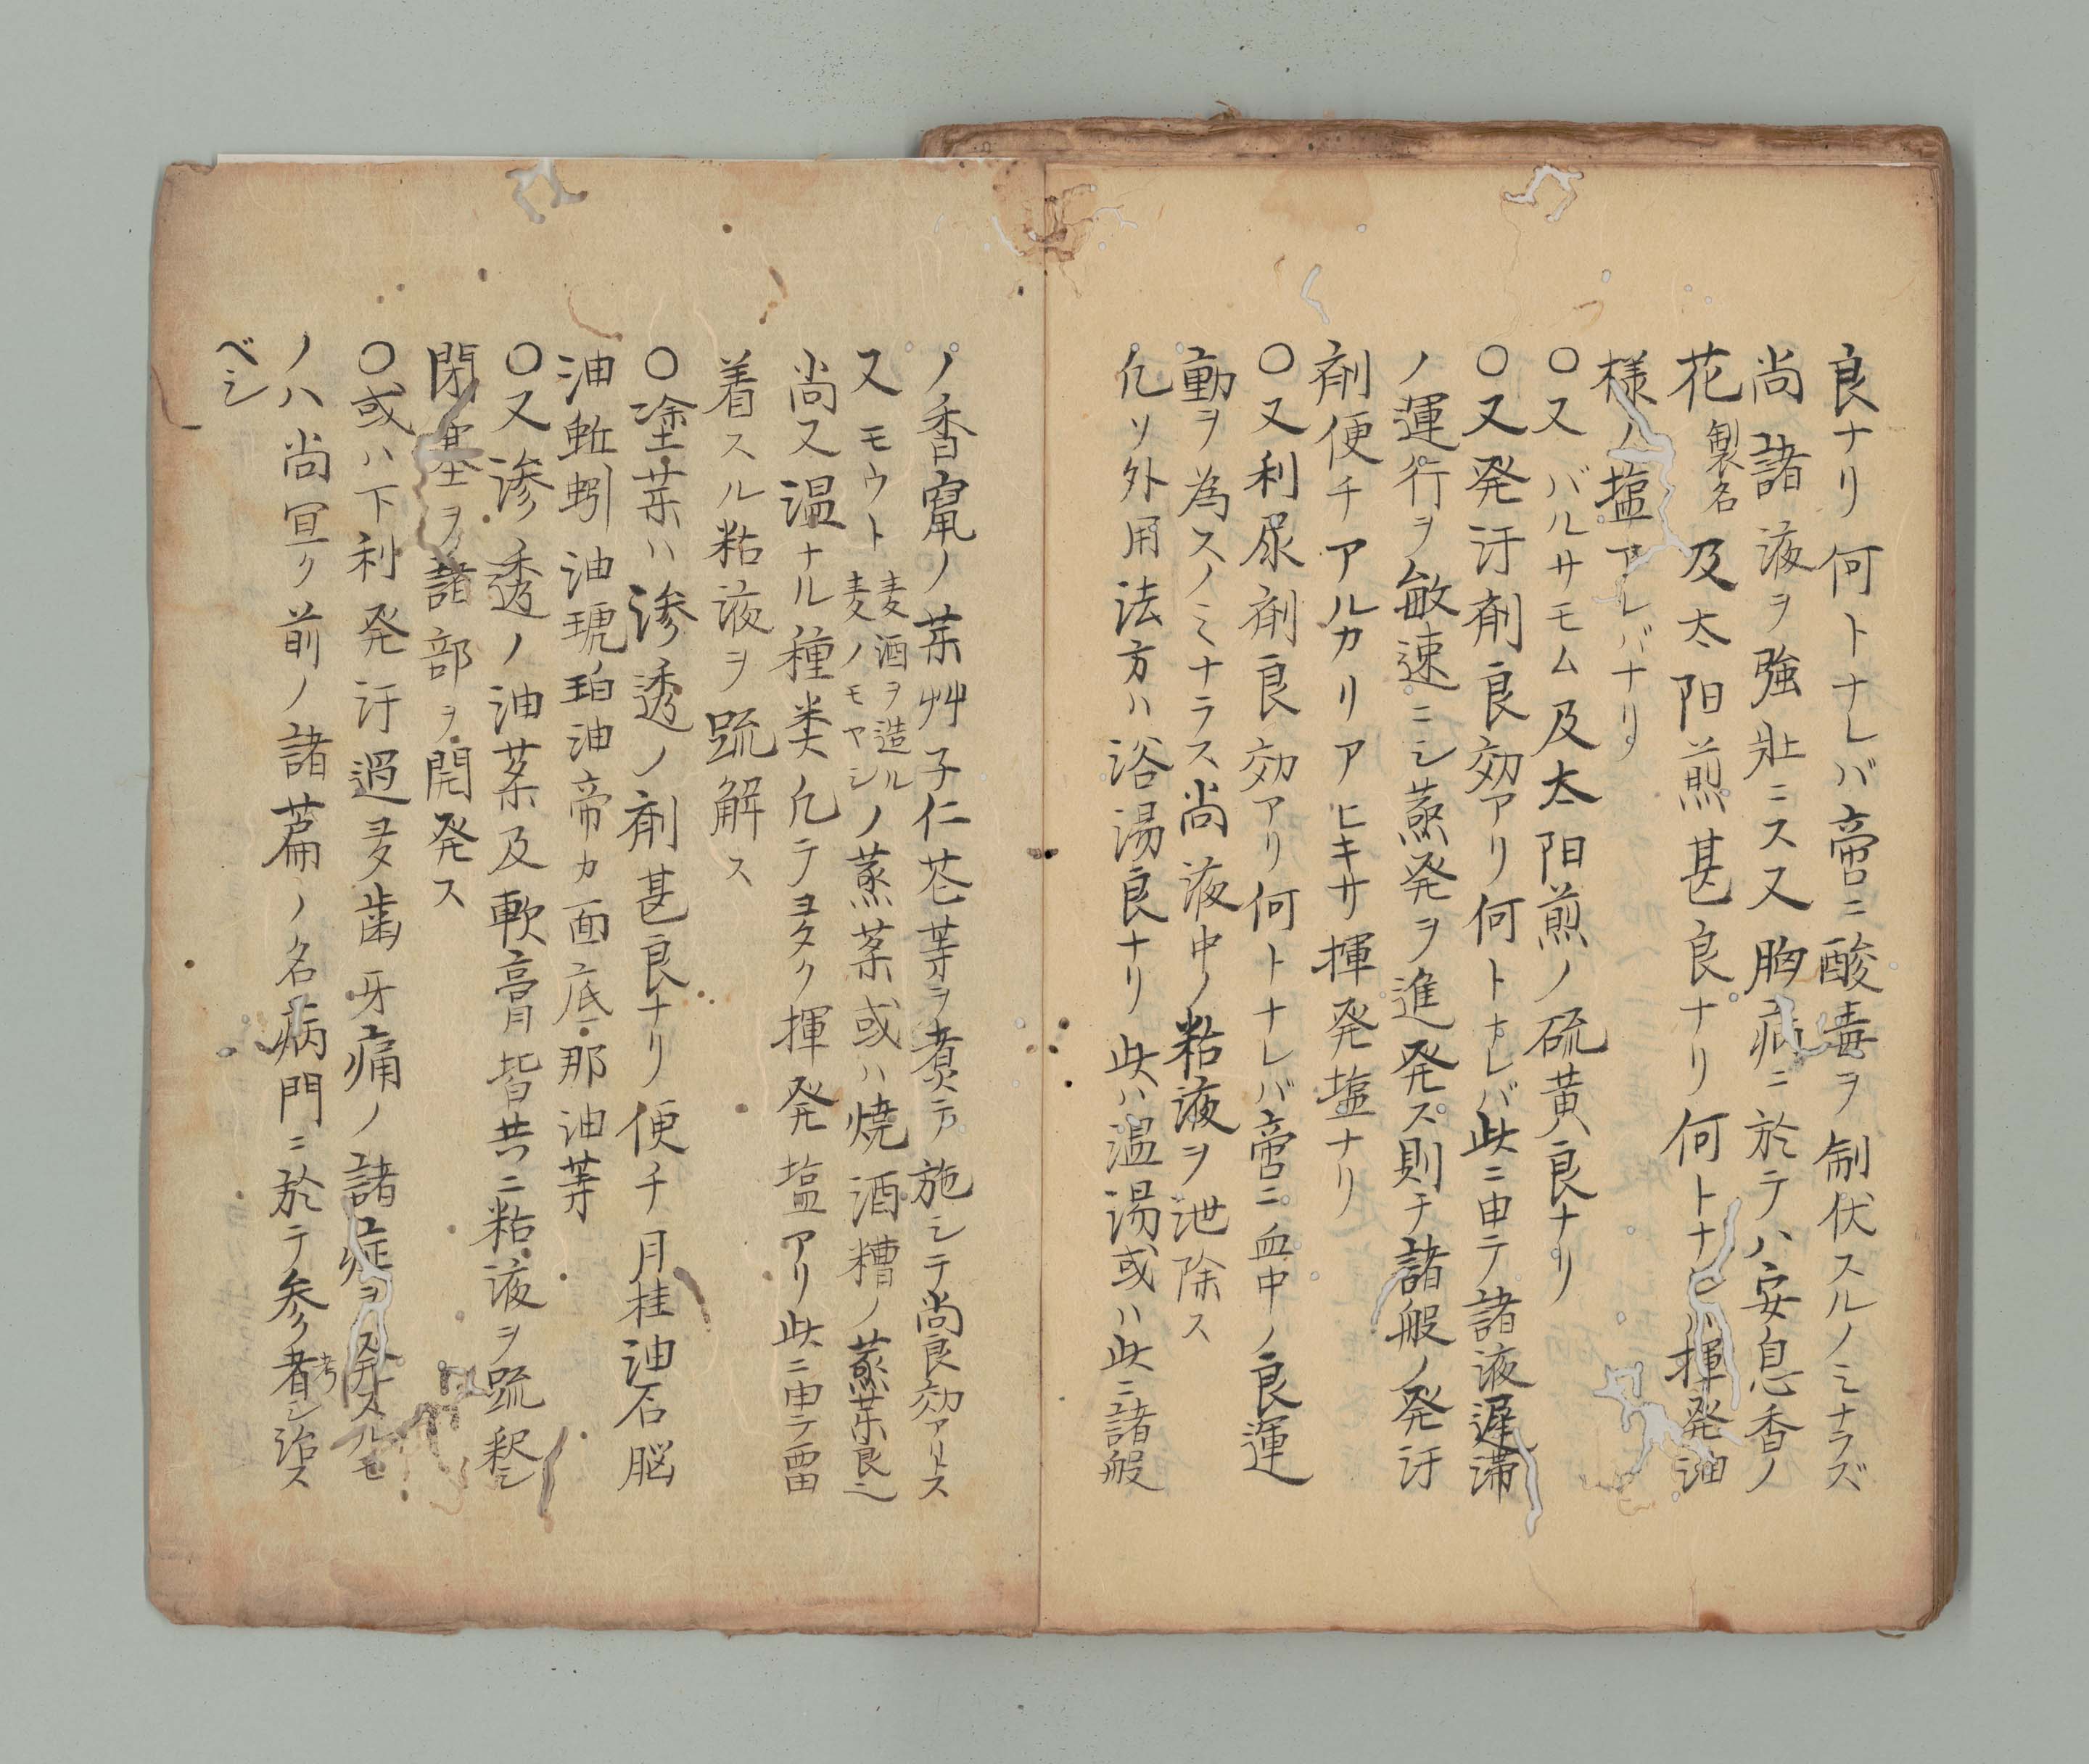 良ナリ何トナレバ啻ニ酸毒ヲ制伏スルノミナラズ
尚諸液ヲ強壮ニス又胸病ニ於テハ安息香ノ
花製名及太阳煎甚良ナリ何トナレハ揮発油
様ノ塩アレバナリ
〇又バルサモム及太阳煎ノ硫黄良ナリ
〇又発汗剤良効アリ何トナレバ此ニ由テ諸液遅滞
ノ運行ヲ敏速ニシ蒸発ヲ進発ス則チ諸般ノ発汗
剤便チアルカリアヒキサ揮発塩ナリ
〇又利尿剤良効アリ何トナレバ啻ニ血中ノ良運
動ヲ為スノミナラス尚液中ノ粘液ヲ泄除ス
凢ソ外用法方ハ浴湯良ナリ此ハ温湯或ハ此ニ諸般
ノ香竄ノ葉艸子仁花等ヲ煮テ施シテ尚良効アリトス
又モウト麦酒ヲ造ル麦ノモヤシノ蒸薬或ハ焼酒糟ノ蒸葉良シ
尚又温ナル種类凢テヨク揮発塩アリ此ニ由テ畱
着スル粘液ヲ疏解ス
〇塗葉ハ渗透ノ剤甚良ナリ便チ月桂油石脳
油蚯蚓油琥珀油帝カ面底那油等
〇又渗透ノ油薬及軟膏皆共ニ粘液ヲ疏釈シ
閉塞ヲ諸部ヲ開発ス
〇或ハ下利発汗過多歯牙痛ノ諸症ヲ発スルモ
ノハ尚冝ク前ノ諸篇ノ名病門ニ於テ参考シ治ス
ベシ